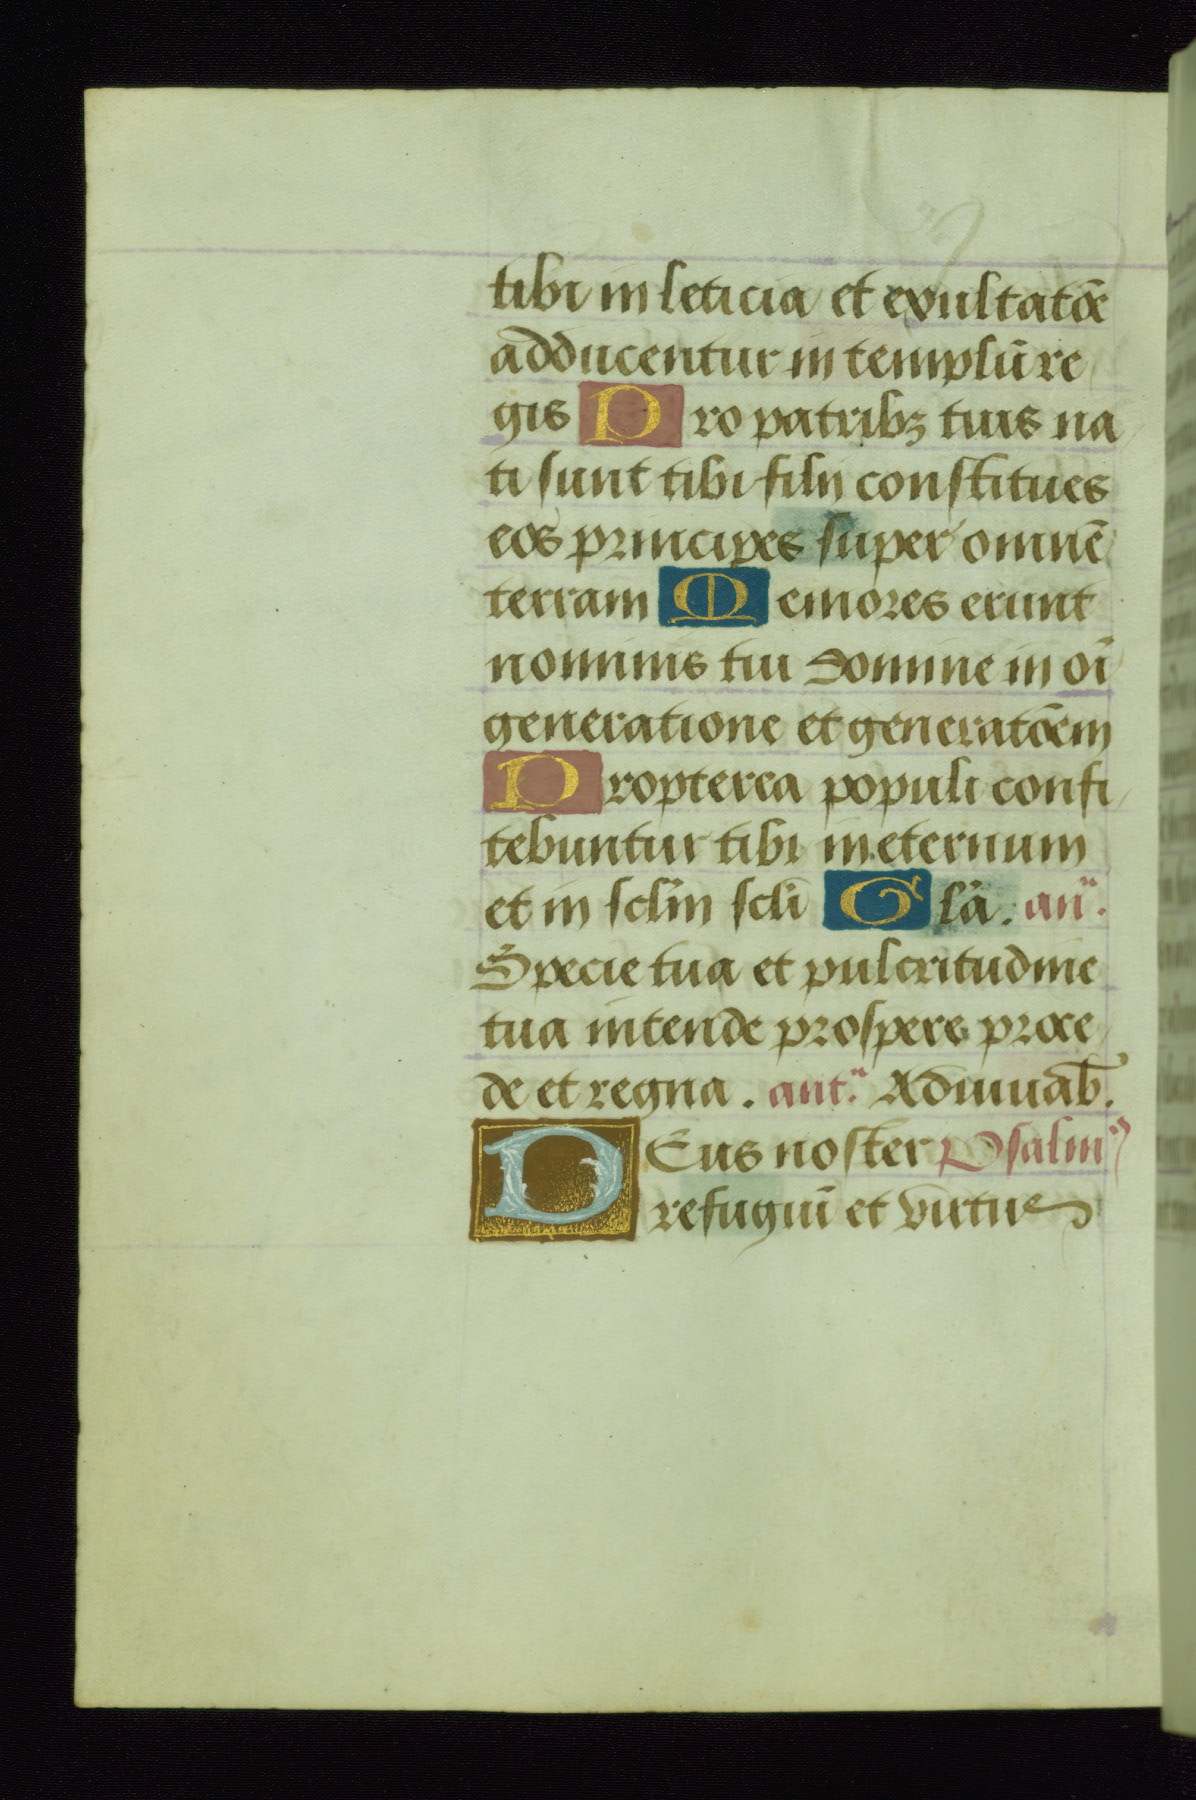 tibi in leticia et exultatōe
adducentur in templū re
gis Pro patribꝫ tuis na
ti sunt tibi filii constitues
eos principes super omnē
terram Memores erunt
nominis tui domine in oī
generatione et generatōem
Propterea populi confi
tebuntur tibi in eternum
et in sclm̄ scli̅ Glā. an̄ᵃ.
Specie tua et pulcritudine
tua intende prospere proce
de et regna. antᵃ. Adiuuab̄.
DEus noster Psalmꝰ
refugiū et virtus